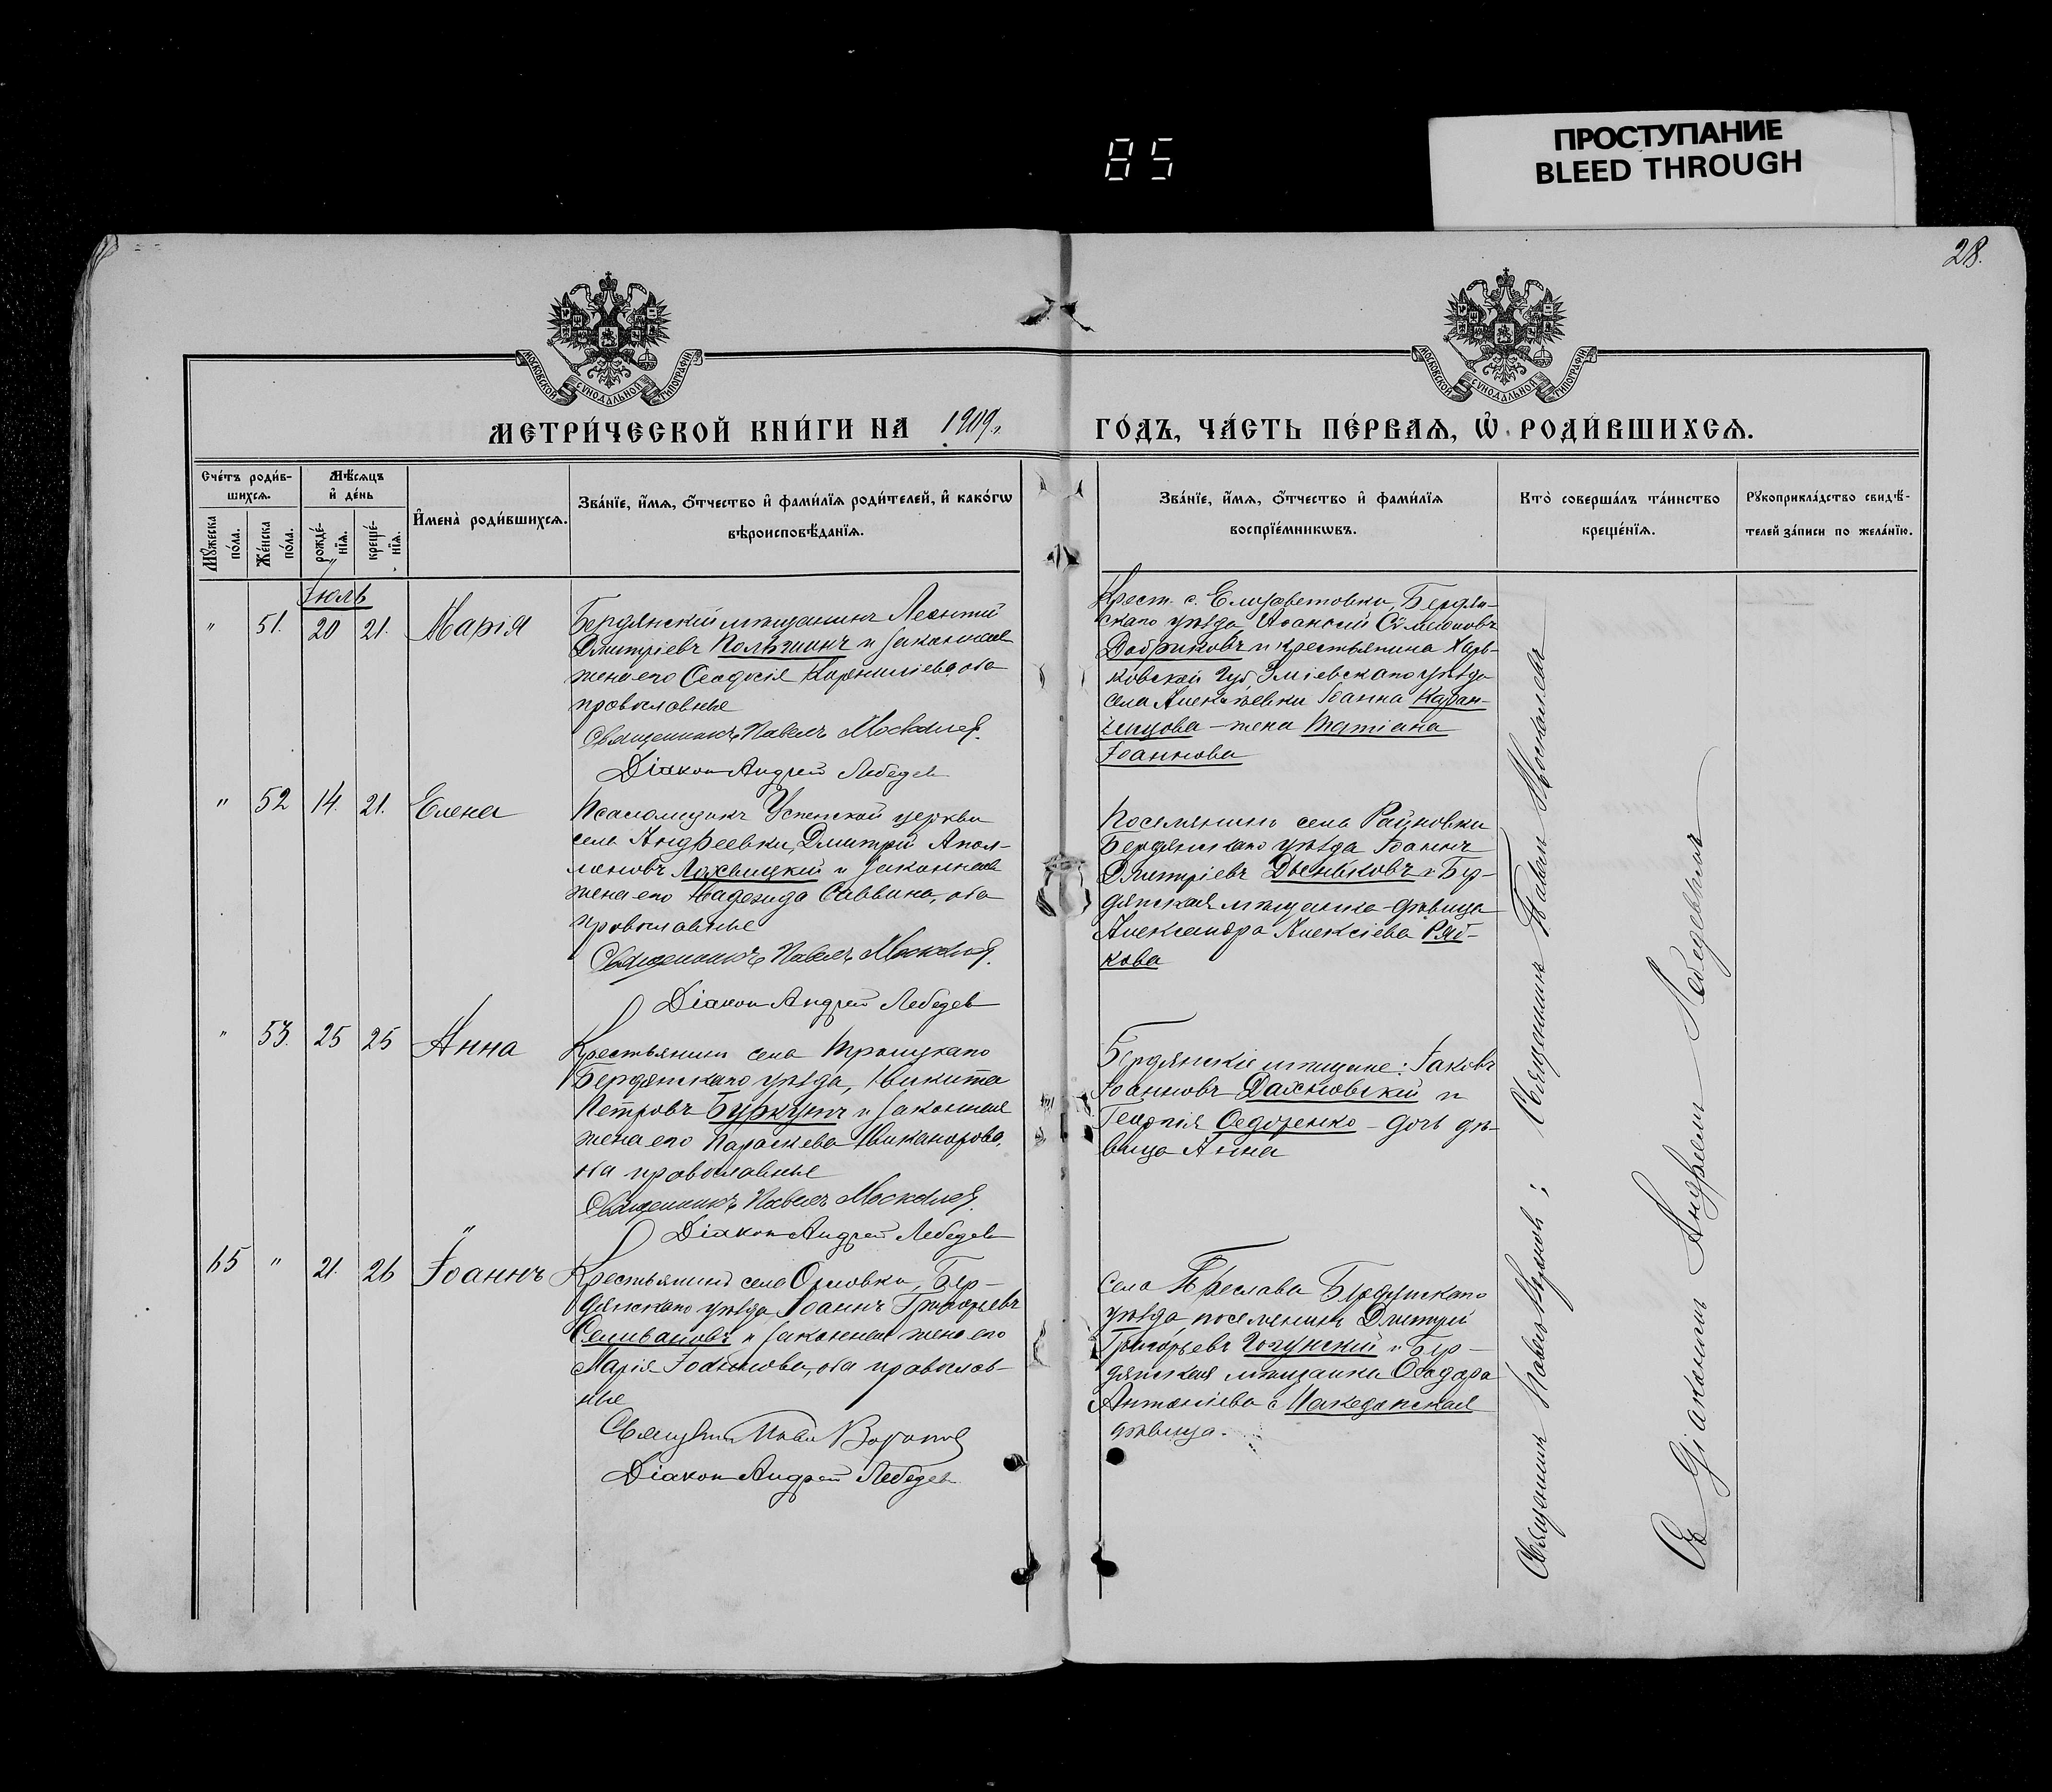 ПРОСТУПАНИЕ
BLEED THROUGH
85
28.
МОСКОВСКОЙ СѴНОДАЛЬНОЙ ТИПОГРАФІИ
МОСКОВСКОЙ СѴНОДАЛЬНОЙ ТИПОГРАФІИ
МЕТРИ́ЧЕСКОЙ КНИ́ГИ НА 1909 г.
ГО́ДЪ, ЧА́СТЬ ПЕ́РВАѦ, Ѡ РОДИ́ВШИХСѦ.
Сче́тъ роди́в-
шихсѧ.
Мꙋ́жеска по́ла.
Же́нска по́ла.
Мѣ́сѧцъ
и҆ де́нь
рожде́-
нїѧ.
креще́-
нїѧ.
И҆мена̀ роди́вшихсѧ.
Зва́нїе, и҆́мѧ, ѻ҆́тчество и҆ фами́лїѧ роди́телей, и҆ како́гѡ
вѣроисповѣ́данїѧ.
Зва́нїе, и҆́мѧ, ѻ҆́тчество и҆ фами́лїѧ
воспрїе́мникѡвъ.
Кто̀ соверша́лъ та́инство
креще́нїѧ.
Рꙋкоприкла́дство свидѣ́-
телей за́писи по жела́нїю.
Іюль
" 51. 20 21. Марія
Бердянскій мѣщанинъ Леонтій
Дмитріевъ и законная
жена его Ѳеодосія Корниліева, оба
православные
Священникъ Павелъ Москалев.
Діакон Андрей Лебедев
Крест. с. Елизаветовки, Бердян-
скаго уѣзда
Добриковъ и крестьянина Харь-
ковской губ. Зміевскаго уѣзда
села Алексѣевки Іоанна Каран-
– жена Татіана
Іоаннова
" 52 14. 21. Елена
Псаломщикъ Успенской церкви
села Андреевки, Дмитрій Апол-
лоновъ Лохвицкій и законная
жена его Надежда Саввина, оба
православные
Священникъ Павелъ Москалев.
Діакон Андрей Лебедев
Поселянинъ села Райновки
Бердянскаго уѣзда Іоаннъ
Дмитріевъ и Бер-
дянская мѣщанка – дѣвица
Александра Алексіева Ряб-
кова
" 53. 25 25 Анна
Крестьянинъ села Троицкаго
Бердянскаго уѣзда, Никита
Петровъ Буркутъ и законная
жена его Параскева Никанорова,
оба православные
Священникъ Павелъ Москалев.
Діакон Андрей Лебедев
Бердянскіе мѣщане: Іаковъ
Іоанновъ Дахновскій и
Георгія Ѳедоренко – дочь дѣ-
вица Анна
65 " 21. 26 Іоаннъ
Крестьянинъ села Орловки, Бер-
дянскаго уѣзда Іоаннъ Григорьевъ
Селивановъ и законная жена его
Марія, оба православ-
ные
Діакон Андрей Лебедев
Села Преслава Бердянскаго
уѣзда поселянинъ Дмитрій
Григорьевъ и Бер-
дянская мѣщанка Ѳеодора
Антоніева Македонская
дѣвица.
Священникъ Павелъ Москалевъ
Съ Діакономъ Андреемъ Лебедевымъ